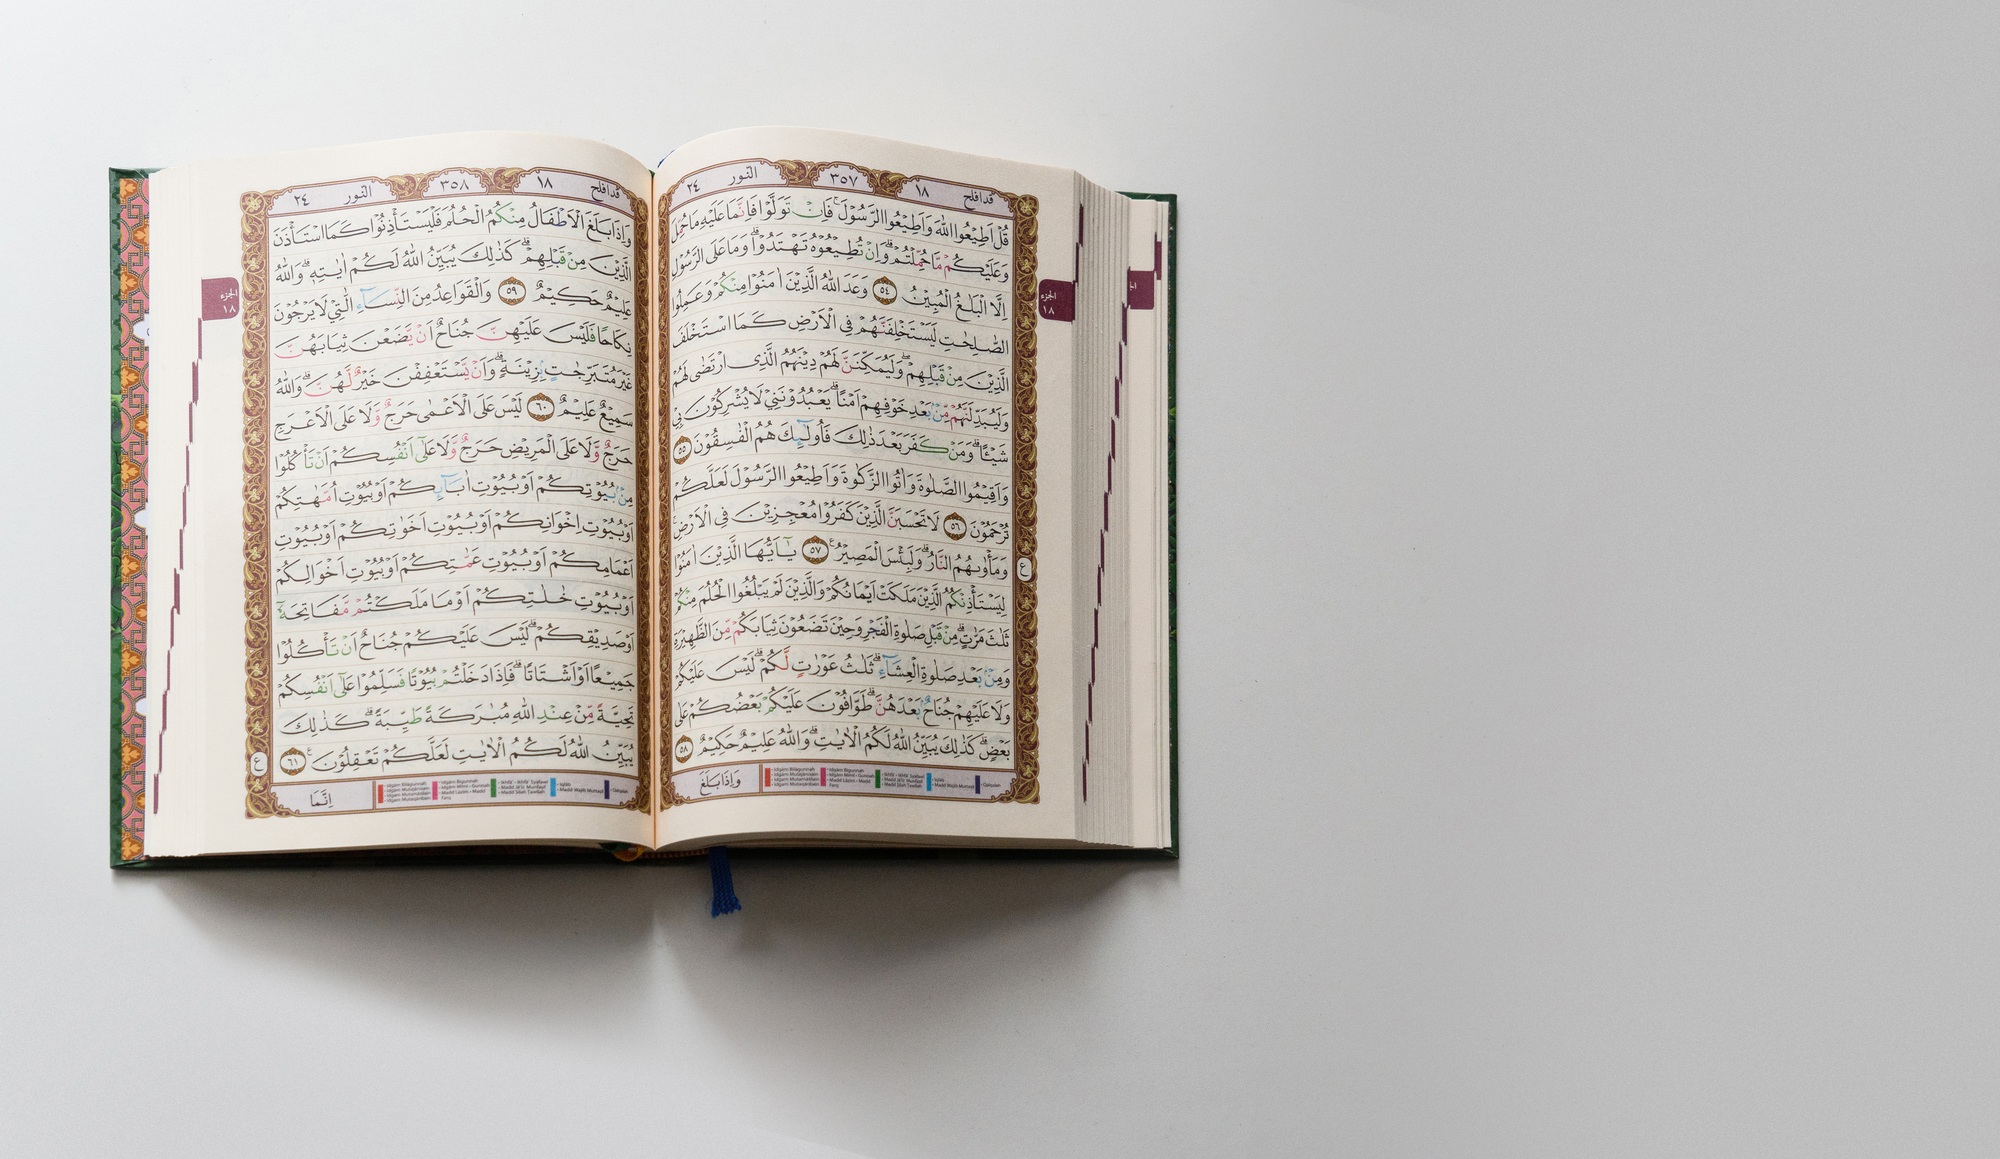 قدافلح ١٨ ٣٥٧ النّور ٢٤
قُلْ اَطِيْعُوا اللّٰهَ وَاَطِيْعُوا الرَّسُوْلَۚ فَاِنْ تَوَلَّوْا فَاِنَّمَا عَلَيْهِ مَا حُمِّلَ
وَعَلَيْكُمْ مَّا حُمِّلْتُمْۗ وَاِنْ تُطِيْعُوْهُ تَهْتَدُوْاۗ وَمَا عَلَى الرَّسُوْلِ
اِلَّا الْبَلٰغُ الْمُبِيْنُ ٥٤ وَعَدَ اللّٰهُ الَّذِيْنَ اٰمَنُوْا مِنْكُمْ وَعَمِلُوا
الصّٰلِحٰتِ لَيَسْتَخْلِفَنَّهُمْ فِى الْاَرْضِ كَمَا اسْتَخْلَفَ
الَّذِيْنَ مِنْ قَبْلِهِمْۖ وَلَيُمَكِّنَنَّ لَهُمْ دِيْنَهُمُ الَّذِى ارْتَضٰى لَهُمْ
وَلَيُبَدِّلَنَّهُمْ مِّنْۢ بَعْدِ خَوْفِهِمْ اَمْنًاۗ يَعْبُدُوْنَنِيْ لَا يُشْرِكُوْنَ بِيْ
شَيْـًٔاۗ وَمَنْ كَفَرَ بَعْدَ ذٰلِكَ فَاُولٰۤىِٕكَ هُمُ الْفٰسِقُوْنَ ٥٥
وَاَقِيْمُوا الصَّلٰوةَ وَاٰتُوا الزَّكٰوةَ وَاَطِيْعُوا الرَّسُوْلَ لَعَلَّكُمْ
تُرْحَمُوْنَ ٥٦ لَا تَحْسَبَنَّ الَّذِيْنَ كَفَرُوْا مُعْجِزِيْنَ فِى الْاَرْضِۚ
وَمَأْوٰىهُمُ النَّارُۗ وَلَبِئْسَ الْمَصِيْرُ ࣖ ٥٧ يٰٓاَيُّهَا الَّذِيْنَ اٰمَنُوْا
لِيَسْتَأْذِنْكُمُ الَّذِيْنَ مَلَكَتْ اَيْمَانُكُمْ وَالَّذِيْنَ لَمْ يَبْلُغُوا الْحُلُمَ مِنْكُمْ
ثَلٰثَ مَرّٰتٍۗ مِنْ قَبْلِ صَلٰوةِ الْفَجْرِ وَحِيْنَ تَضَعُوْنَ ثِيَابَكُمْ مِّنَ الظَّهِيْرَةِ
وَمِنْۢ بَعْدِ صَلٰوةِ الْعِشَاۤءِۗ ثَلٰثُ عَوْرٰتٍ لَّكُمْۗ لَيْسَ عَلَيْكُمْ
وَلَا عَلَيْهِمْ جُنَاحٌۢ بَعْدَهُنَّۗ طَوَّافُوْنَ عَلَيْكُمْ بَعْضُكُمْ عَلٰى
بَعْضٍۗ كَذٰلِكَ يُبَيِّنُ اللّٰهُ لَكُمُ الْاٰيٰتِۗ وَاللّٰهُ عَلِيْمٌ حَكِيْمٌ ٥٨
وَاِذَا بَلَغَ
ع
الجزء
١٨
قدافلح ١٨ ٣٥٨ النّور ٢٤
وَاِذَا بَلَغَ الْاَطْفَالُ مِنْكُمُ الْحُلُمَ فَلْيَسْتَأْذِنُوْا كَمَا اسْتَأْذَنَ
الَّذِيْنَ مِنْ قَبْلِهِمْۗ كَذٰلِكَ يُبَيِّنُ اللّٰهُ لَكُمْ اٰيٰتِهٖۗ وَاللّٰهُ
عَلِيْمٌ حَكِيْمٌ ٥٩ وَالْقَوَاعِدُ مِنَ النِّسَاۤءِ الّٰتِيْ لَا يَرْجُوْنَ
نِكَاحًا فَلَيْسَ عَلَيْهِنَّ جُنَاحٌ اَنْ يَّضَعْنَ ثِيَابَهُنَّ
غَيْرَ مُتَبَرِّجٰتٍۢ بِزِيْنَةٍۗ وَاَنْ يَّسْتَعْفِفْنَ خَيْرٌ لَّهُنَّۗ وَاللّٰهُ
سَمِيْعٌ عَلِيْمٌ ٦٠ لَيْسَ عَلَى الْاَعْمٰى حَرَجٌ وَّلَا عَلَى الْاَعْرَجِ
حَرَجٌ وَّلَا عَلَى الْمَرِيْضِ حَرَجٌ وَّلَا عَلٰٓى اَنْفُسِكُمْ اَنْ تَأْكُلُوْا
مِنْۢ بُيُوْتِكُمْ اَوْ بُيُوْتِ اٰبَاۤىِٕكُمْ اَوْ بُيُوْتِ اُمَّهٰتِكُمْ
اَوْ بُيُوْتِ اِخْوَانِكُمْ اَوْ بُيُوْتِ اَخَوٰتِكُمْ اَوْ بُيُوْتِ
اَعْمَامِكُمْ اَوْ بُيُوْتِ عَمّٰتِكُمْ اَوْ بُيُوْتِ اَخْوَالِكُمْ
اَوْ بُيُوْتِ خٰلٰتِكُمْ اَوْ مَا مَلَكْتُمْ مَّفَاتِحَهٗٓ
اَوْ صَدِيْقِكُمْۗ لَيْسَ عَلَيْكُمْ جُنَاحٌ اَنْ تَأْكُلُوْا
جَمِيْعًا اَوْ اَشْتَاتًاۗ فَاِذَا دَخَلْتُمْ بُيُوْتًا فَسَلِّمُوْا عَلٰٓى اَنْفُسِكُمْ
تَحِيَّةً مِّنْ عِنْدِ اللّٰهِ مُبٰرَكَةً طَيِّبَةًۗ كَذٰلِكَ
يُبَيِّنُ اللّٰهُ لَكُمُ الْاٰيٰتِ لَعَلَّكُمْ تَعْقِلُوْنَ ࣖ ٦١
اِنَّمَا
ع
الجزء
١٨